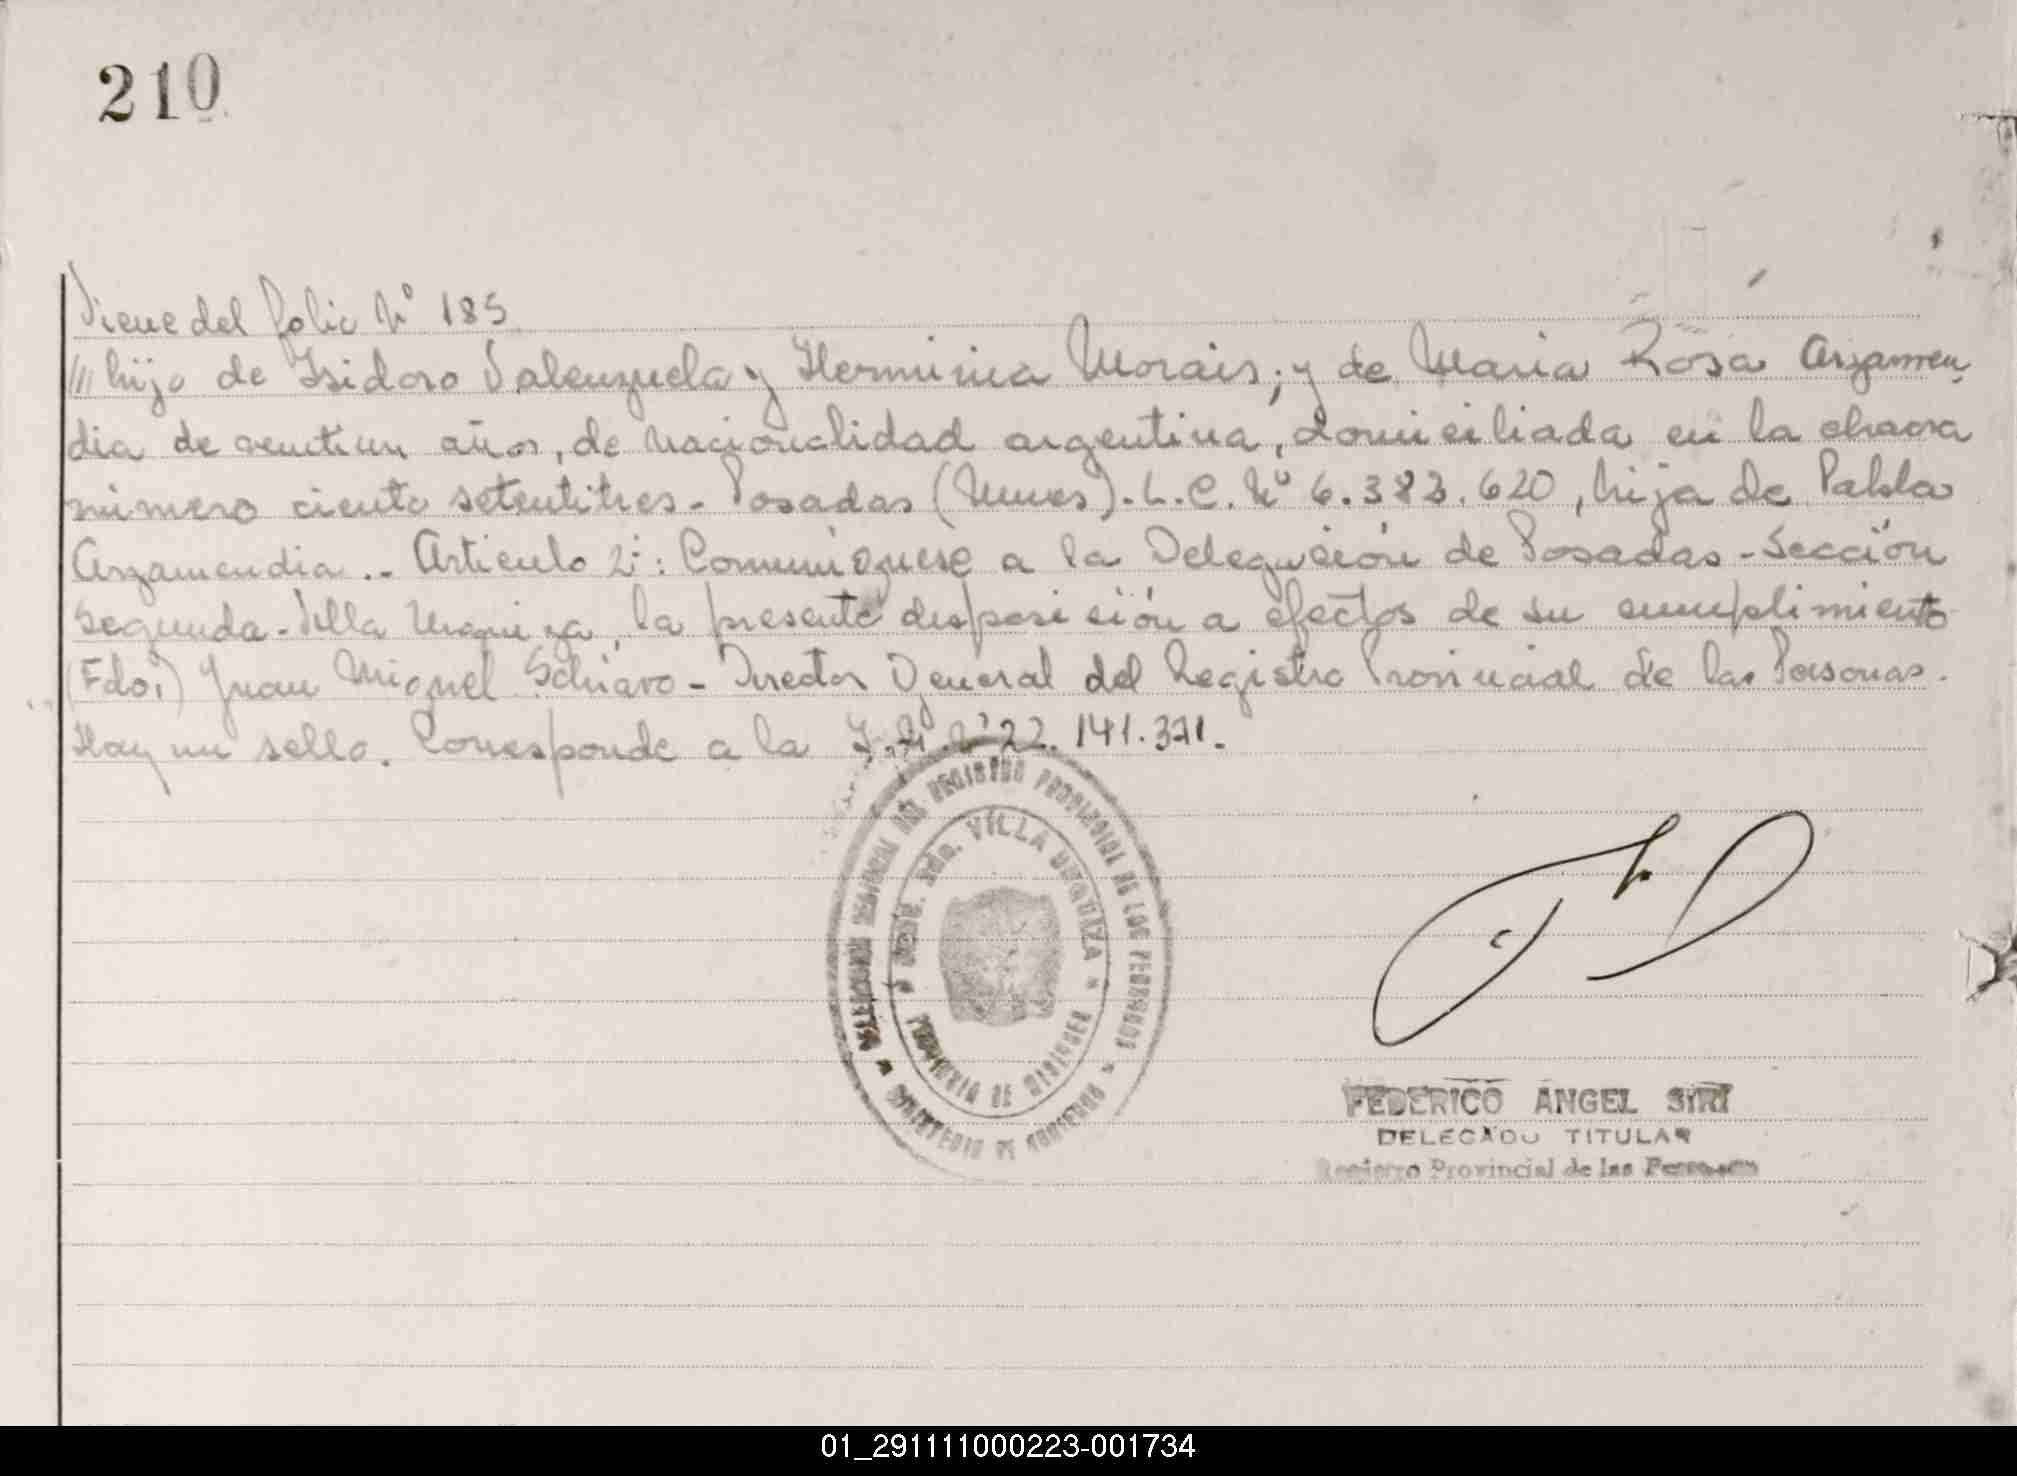 210
Viene del folio Nº 185
/// hijo de Isidoro Valenzuela y Herminia Morais; y de Maria Rosa Arzamen,
dia de veintiun años, de nacionalidad argentina, domiciliada en la chacra
número ciento setentitres - Posadas (Mnes). L.C. Nº 6.383.620, hija de Pabla
Arzamendia.- Articulo 2º: Comuníquese a la Delegación de Posadas - Sección
Segunda - Villa Urquiza, la presente disposición a efectos de su cumplimiento
(Fdo.) Juan Miguel Schiavo - Director General del Registro Provincial de las Personas.
Hay un sello. Corresponde a la Nº 22.141.371.
REGISTRO PROVINCIAL DE LAS PERSONAS
MINISTERIO DE GOBIERNO
VILLA URQUIZA
PROVINCIA DE MISIONES
FEDERICO ANGEL SIRI
DELEGADO TITULAR
Registro Provincial de las Personas
01_291111000223-001734